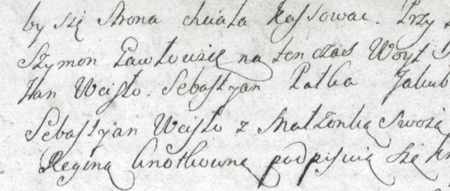 by się strona chciała Kassowac. Przy
Szymon Pawłowicz na ten czas Woyt
Jan Weisło. Sebastyan Palka Jakub
Sebastyan Weisło z Małzonką Swoią
Reginą Knotkowną podpisuią się